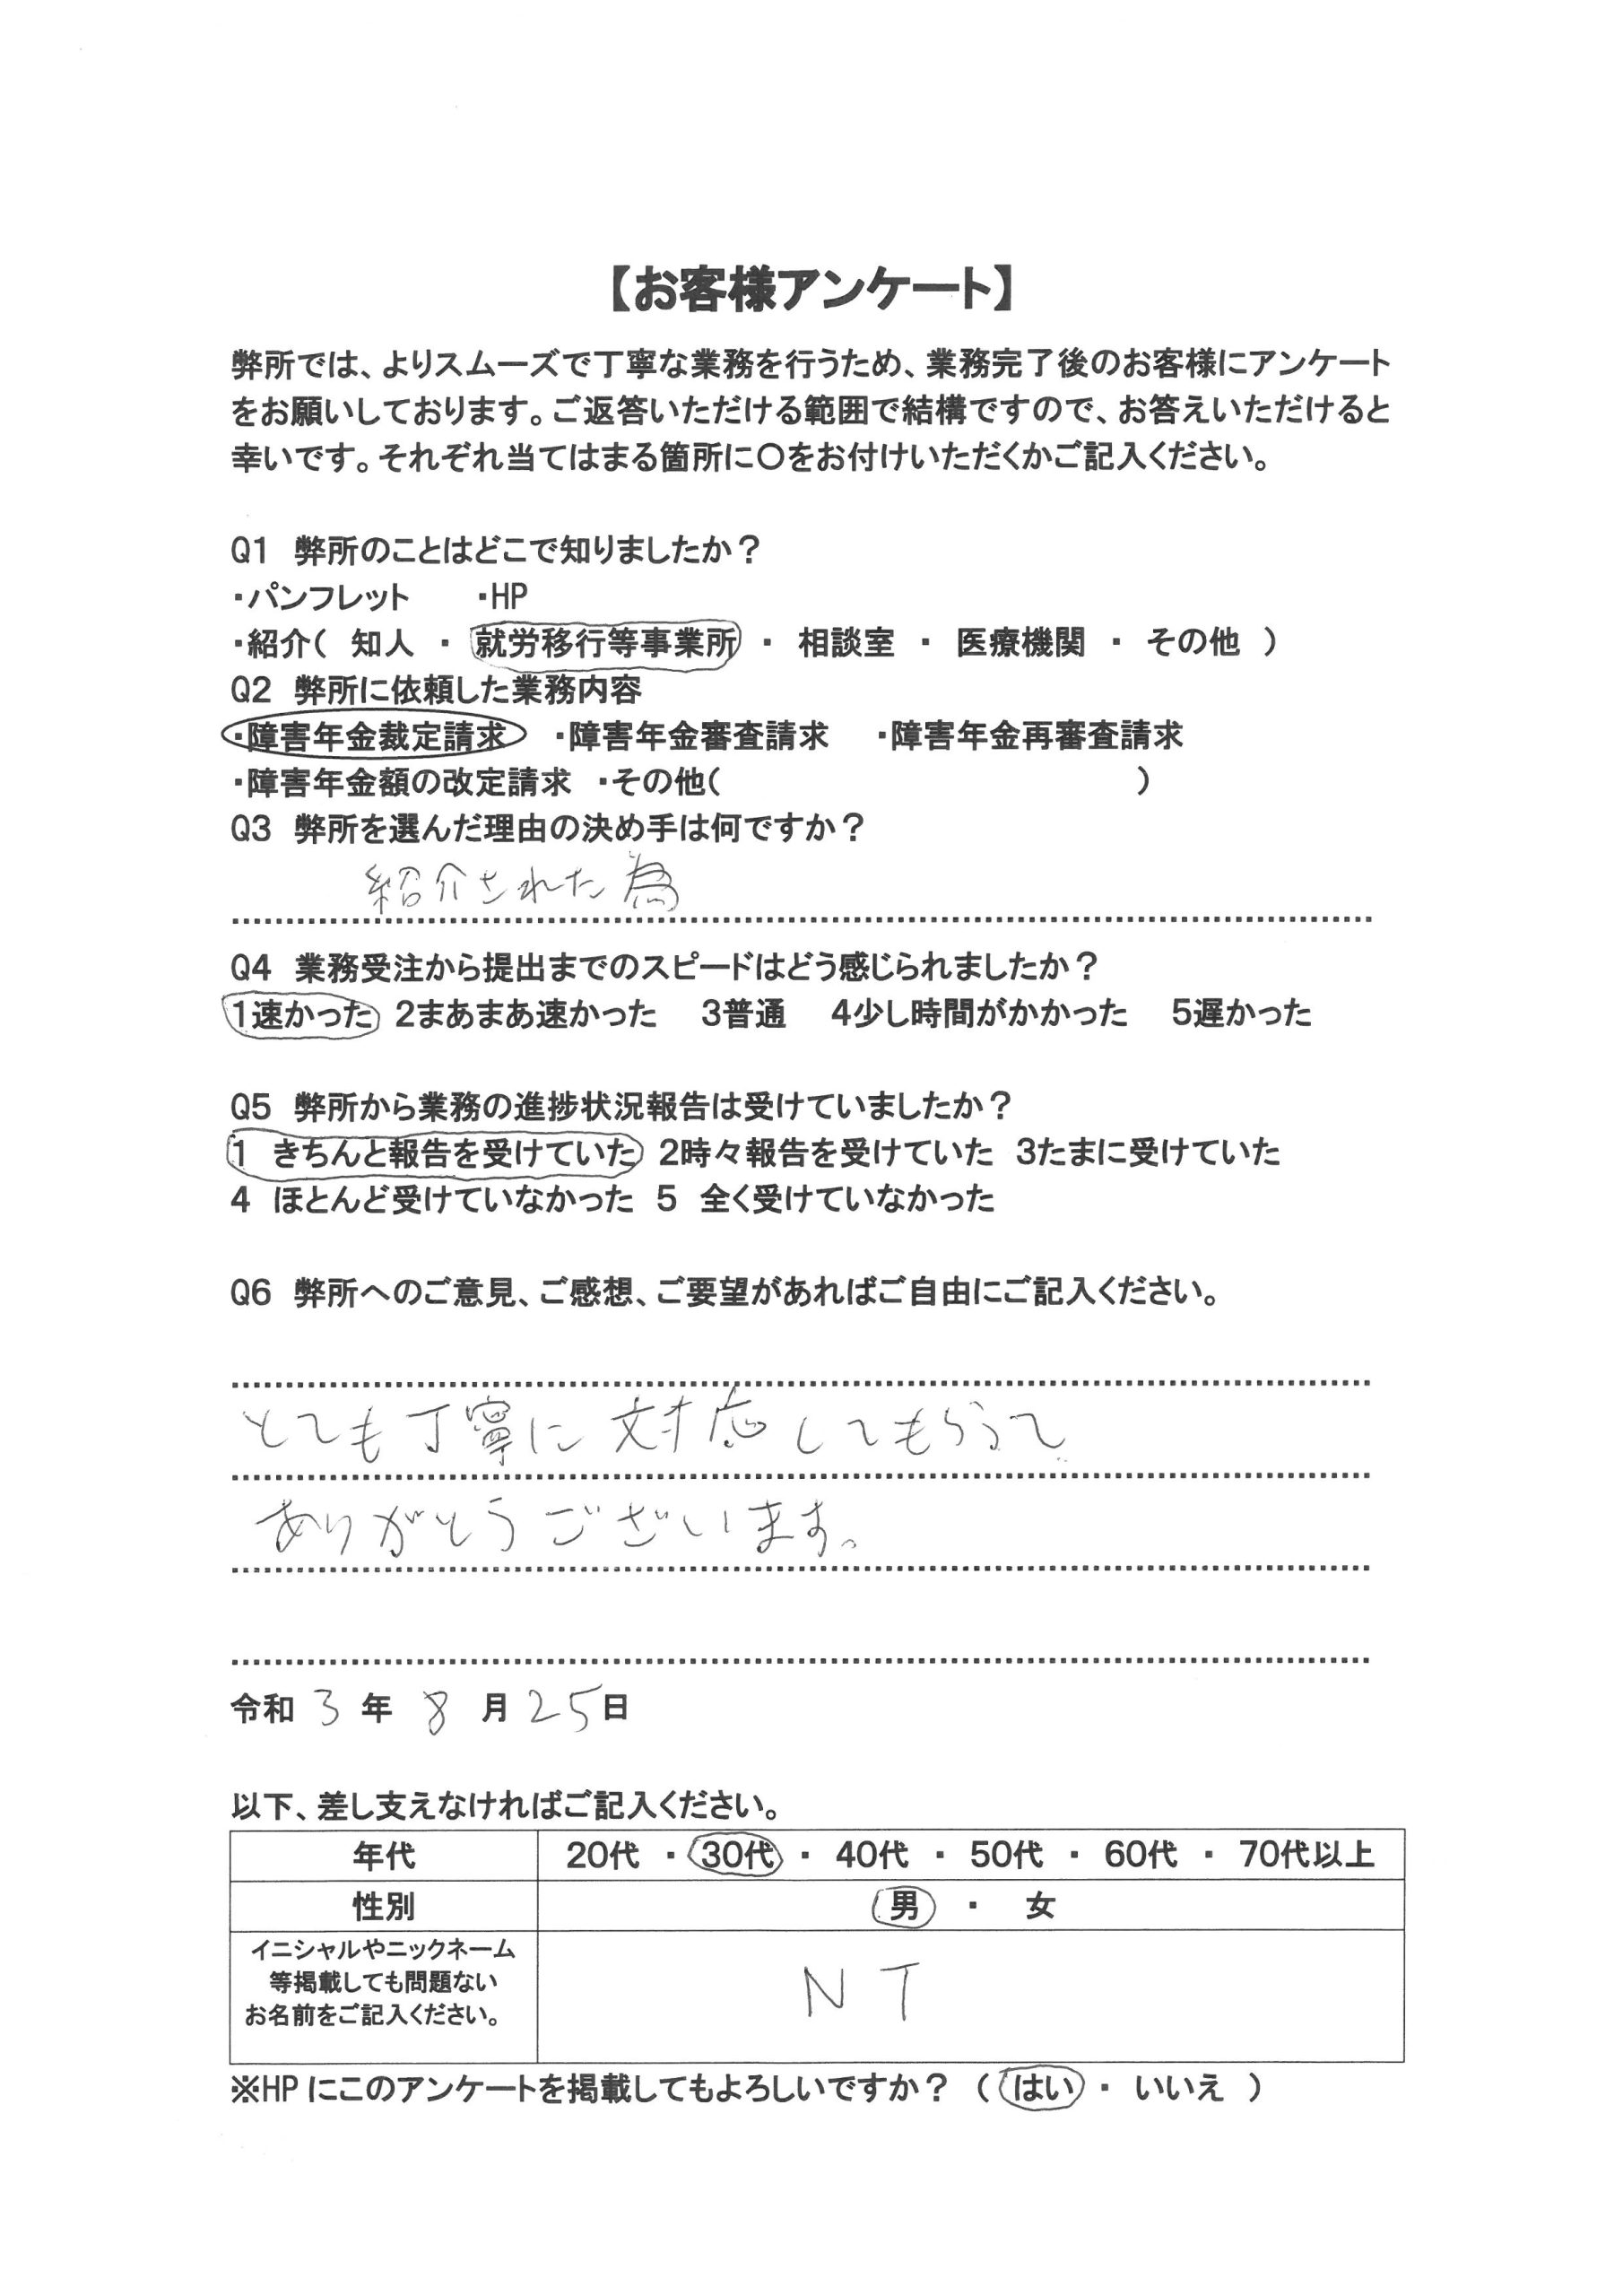 【お客様アンケート】
弊所では、よりスムーズで丁寧な業務を行うため、業務完了後のお客様にアンケート
をお願いしております。ご返答いただける範囲で結構ですので、お答えいただけると
幸いです。それぞれ当てはまる箇所に〇をお付けいただくかご記入ください。
Q1 弊所のことはどこで知りましたか？
・パンフレット ・HP
・紹介（ 知人 ・ 就労移行等事業所 ・ 相談室 ・ 医療機関 ・ その他 ）
Q2 弊所に依頼した業務内容
・障害年金裁定請求 ・障害年金審査請求 ・障害年金再審査請求
・障害年金額の改定請求 ・その他（ ）
Q3 弊所を選んだ理由の決め手は何ですか？
紹介された為
Q4 業務受注から提出までのスピードはどう感じられましたか？
1速かった 2まあまあ速かった 3普通 4少し時間がかかった 5遅かった
Q5 弊所から業務の進捗状況報告は受けていましたか？
1 きちんと報告を受けていた 2時々報告を受けていた 3たまに受けていた
4 ほとんど受けていなかった 5 全く受けていなかった
Q6 弊所へのご意見、ご感想、ご要望があればご自由にご記入ください。
とても丁寧に対応してもらって
ありがとうございます。
令和 3 年 8 月 25日
以下、差し支えなければご記入ください。
年代 20代 ・ 30代 ・ 40代 ・ 50代 ・ 60代 ・ 70代以上
性別 男 ・ 女
イニシャルやニックネーム
等掲載しても問題ない
お名前をご記入ください。
N T
※HPにこのアンケートを掲載してもよろしいですか？ （ はい ・ いいえ ）